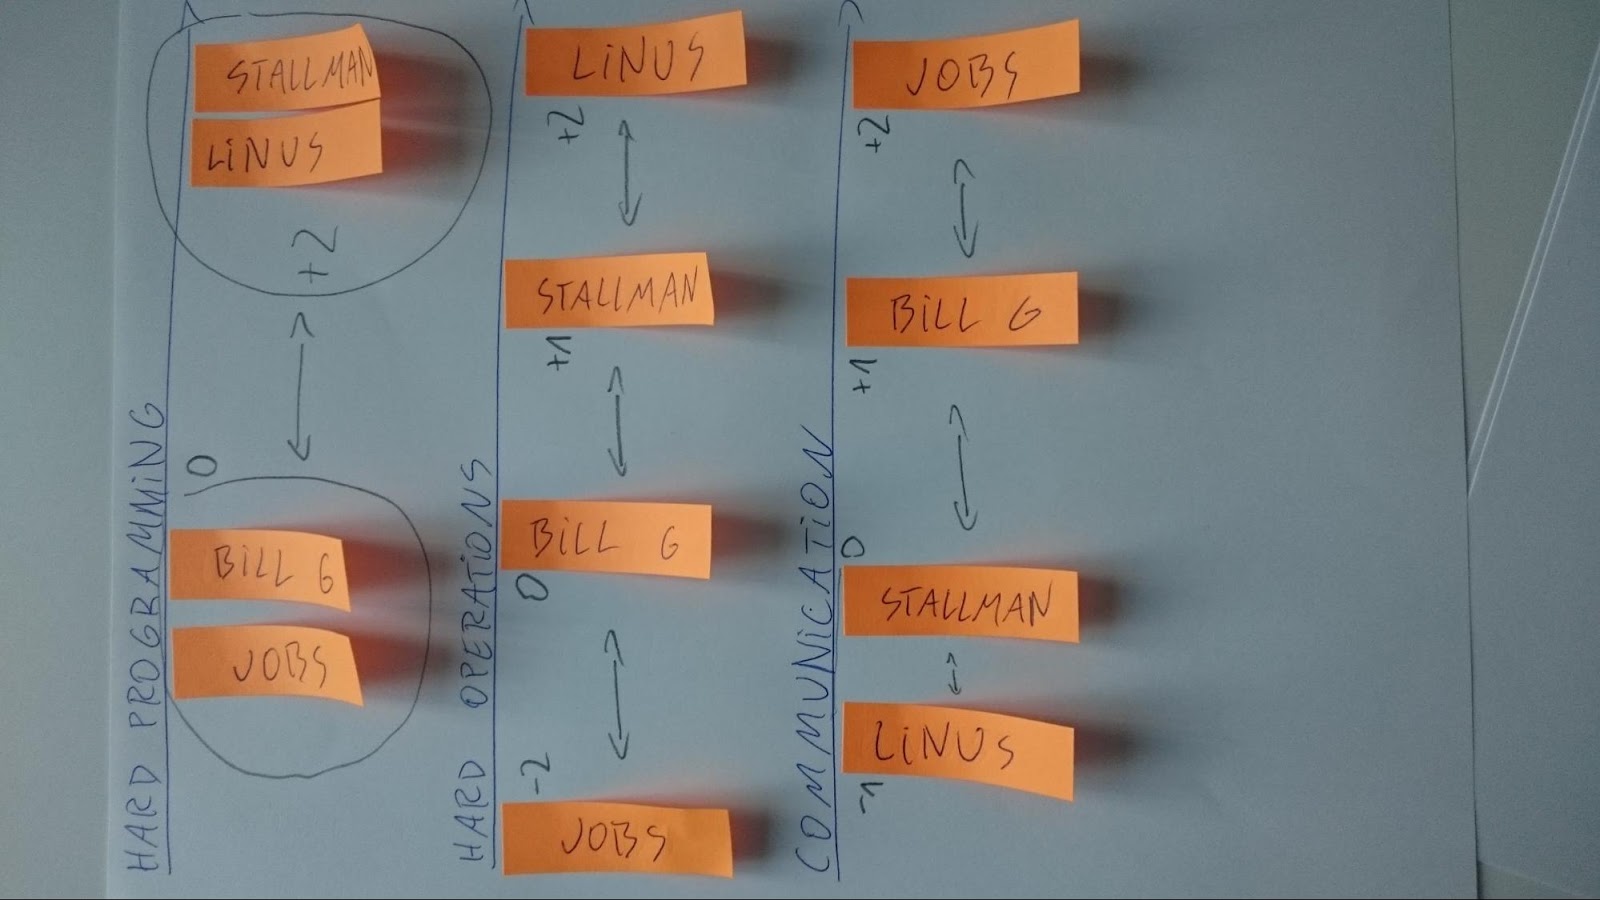 HARD PROGRAMMING
STALLMAN
LiNUS
+2
0
BiLL G
JOBS
HARD OPERATiONS
LiNUS
+2
STALLMAN
+1
BiLL G
0
-2
JOBS
COMMUNiCATiON
JOBS
+2
BiLL G
+1
0
STALLMAN
LiNUS
-1